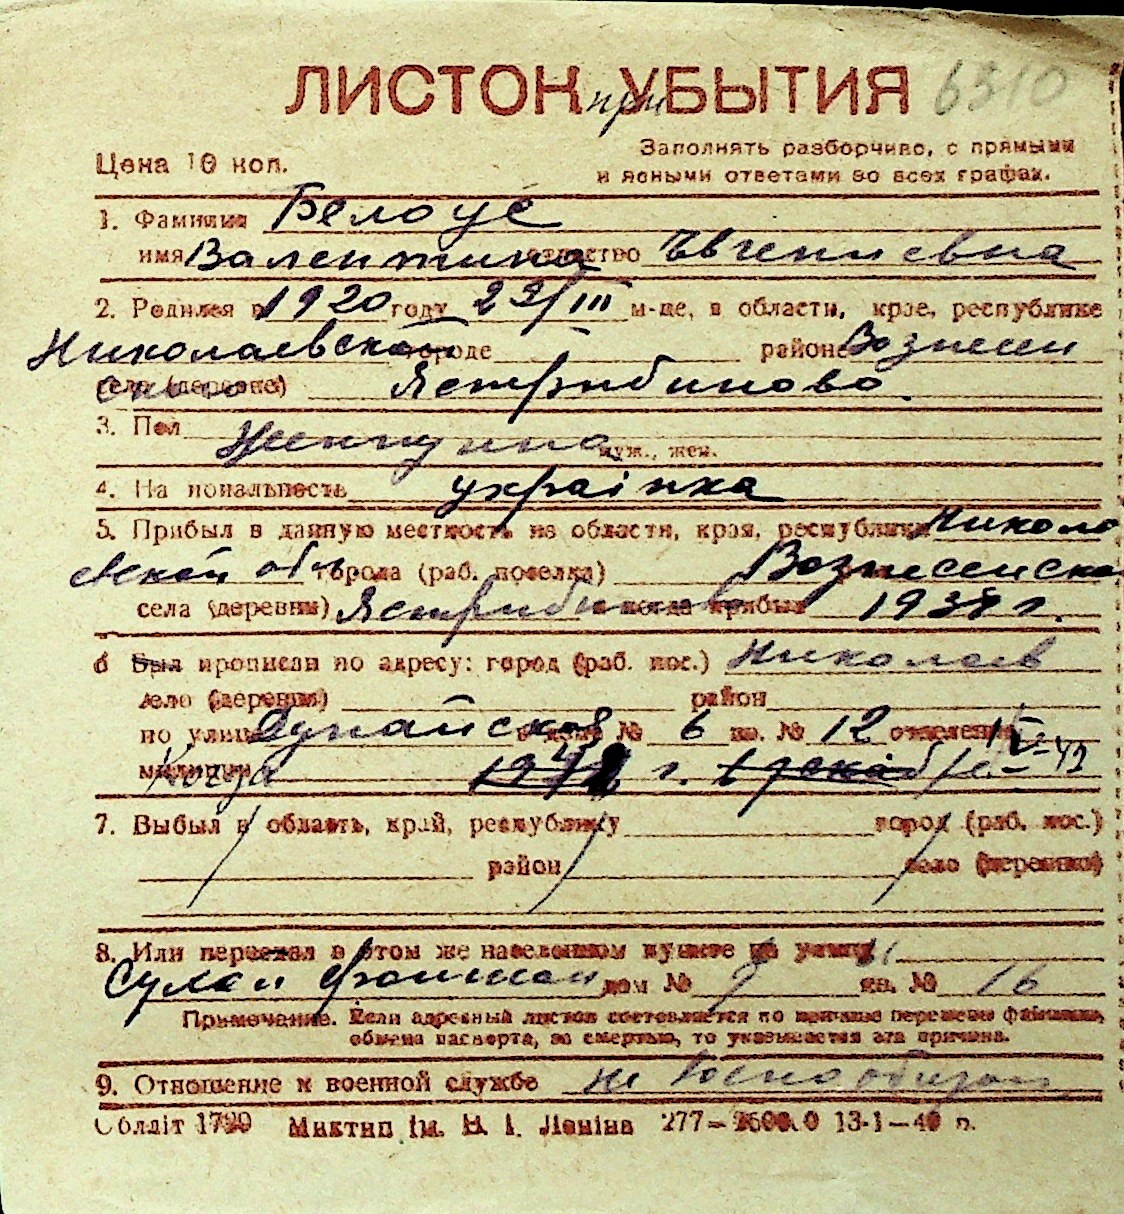 ЛИСТОК при УБЫТИЯ 6310
Цена 10 коп.
Заполнять разборчиво, с прямыми
и ясными ответами во всех графах.
1. Фамилия Белоус
имя Валентина отчество Євгениевна
2. Родился в 1920 году 22/III м-це, в области, крае, республике
Николаевской городе районе Вознесен
село (деревне) Ястрибиново.
3. Пол Женщина муж., жен.
4. Национальность украінка
5. Прибыл в данную местность из области, края, республики Никола
евской обл города (раб. поселка) Вознесенска
села (деревни) Ястрибиново и когда прибыл г.
6 Был прописан по адресу: город (раб. пос.) Николаев
село (деревня) район
по улице Дунайской дом № 6 кв. № 12 отделение
милиции Когда г.
7. Выбыл в область, край, республику город (раб. пос.)
район село (деревню)
8. Или переехал в этом же населенном пункте на улицу
дом № 9 кв. № 16
Примечание. Если адресный листок составляется по причине перемены фамилии,
обмена паспорта, за смертью, то указывается эта причина.
9. Отношение к военной службе не военнообязан
Облліт Миктип ім. В. І. Леніна 277— 13-1—40 р.